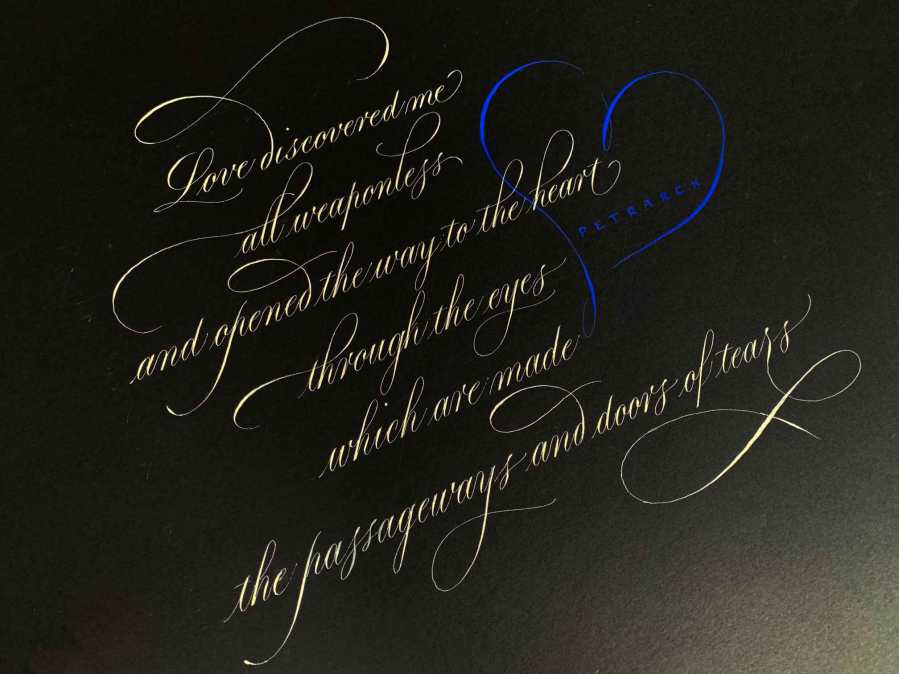 Love discovered me
all weaponless
and opened the way to the heart
through the eyes
which are made
the passageways and doors of tears
PETRARCH